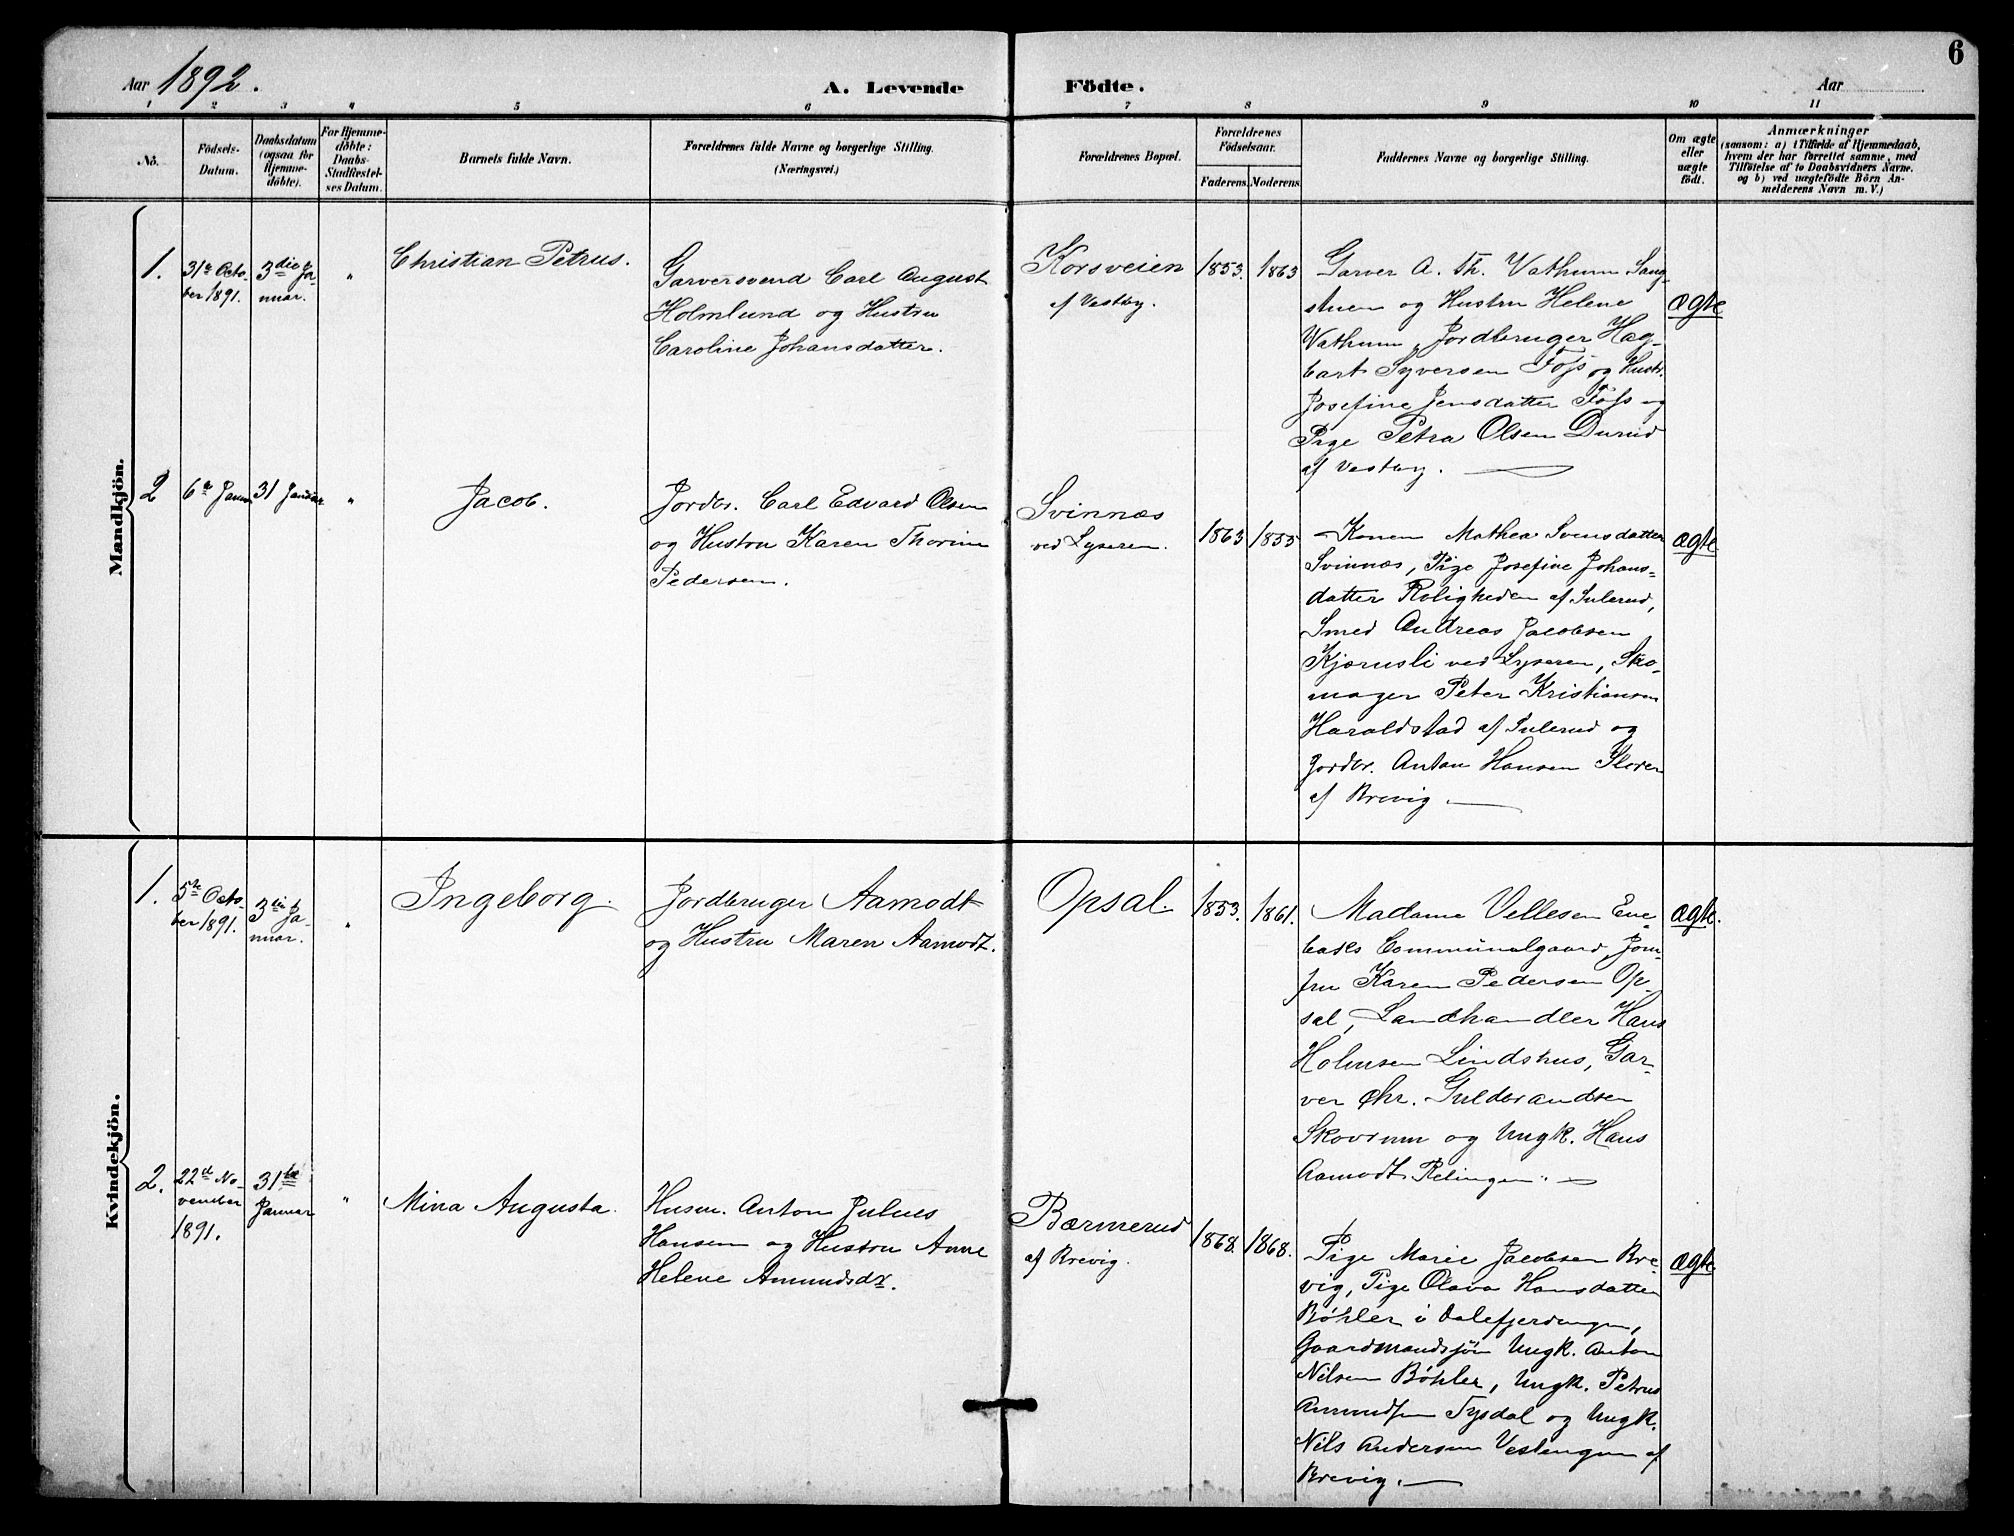 6
Aar 1892.
A. Levende
Födte.
Aar
1 2 3 4 5 6 7 8 9 10 11
No.
Födsels-
Datum.
Daabsdatum
(ogsaa for
Hjemme-
döbte).
For Hjemme-
döbte:
Daabs-
Stadfæstel-
ses Datum.
Barnets fulde Navn.
Forældrenes fulde Navne og borgerlige Stilling.
(Næringsvei.)
Forældrenes Bopæl.
Forældrenes
Födselsaar.
Faderens. Moderens.
Faddernes Navne og borgerlige Stilling.
Om ægte
eller
uægte
født.
Anmærkninger
(saasom: a) i Tilfælde af Hjemmedaab,
hvem der har forrettet samme, med
Tilföielse af to Daabsvidners Navne.
og b) ved uægtefödte Börn An-
melderens Navn m. V.)
Mandkjön.
1.
31te Octo-
ber 1891.
3die Ja-
nuar.
"
Christian Petrus.
Garversvend Carl August
Holmlund og Hustru
Caroline Johansdatter.
Korsveien
af Vestby.
1853.
1863
Garver A. Th. Vathum Sang-
stuen og Hustru Helene
Vathum, Jordbruger Hag-
bart Syversen Foss og Hustr.
Josefine Jensdatter Foss og
Pige Petra Olsen Durud
af Vestby.
ægte
2
6te Janu
31 Januar
"
Jacob.
Jordbr. Carl Edvard Olsen
og Hustru Karen Thorine
Pedersen.
Svinnæs
ved Lyseren.
1863
1855
Konen Mathea Svensdatter
Svinnæs, Pige Josefine Johans-
datter Roligheden af Sulerud,
Smed Andreas Jacobsen
Kjærnsli ved Lyseren, Sko-
mager Peter Kristiansen
Haraldstad af Sulerud og
Jordbr. Anton Hansen
af Brevig.
ægte
Kvindekjön.
1.
5te Octo-
ber 1891.
3die Ja-
nuar.
"
Ingeborg.
Jordbruger Aamodt
og Hustru Maren Aamodt.
Opsal.
1853.
1861.
Madame Vellesen Ene
baks Communalgaard, Jom-
fru Karen Pedersen Op-
sal, Landhandler Hans
Holmsen Lindshus, Gar-
ver Chr. Guldbrandsen
Skovrum og Ungk. Hans
Aamodt Relingen.
ægte.
2.
22de No-
vember
1891.
31te
Januar
"
Mina Augusta.
Husm. Anton Julius
Hansen og Hustru Anne
Helene Amundsdr.
Bærmerud
af Brevig.
1868.
1868.
Pige Marie Jacobsen Bre-
vig, Pige Olava Hansdatter
Bøhler i Dalefjerdingen,
Gaardmandssøn Ungk. Anton
Nilsen Bøhler, Ungk. Petrus
Amundsen Tysdal og Ungk.
Nils Andersen Vestengen af
Brevig.
ægte